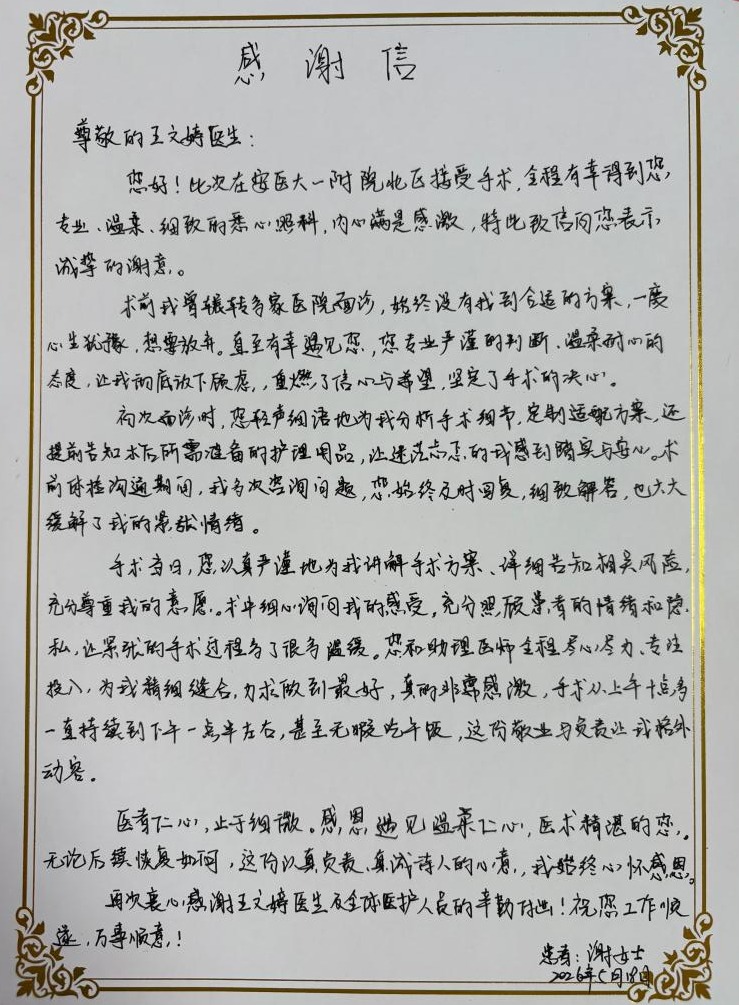 感谢信
尊敬的王文婷医生：
您好！此次在安医大一附院北区接受手术，全程有幸得到您
专业、温柔、细致的悉心照料，内心满是感激，特此致信向您表示
诚挚的谢意。
术前我曾辗转多家医院面诊，始终没有找到合适的方案，一度
心生犹豫，想要放弃。直至有幸遇见您，您专业严谨的判断、温柔耐心的
态度，让我彻底放下顾虑，重燃了信心与希望，坚定了手术的决心。
初次面诊时，您轻声细语地为我分析手术细节，定制适配方案，还
提前告知术后所需准备的护理用品，让迷茫忐忑的我感到踏实与安心。术
前体检沟通期间，我多次咨询问题，您始终及时回复，细致解答，也大大
缓解了我的紧张情绪。
手术当日，您认真严谨地为我讲解手术方案、详细告知相关风险，
充分尊重我的意愿。术中细心询问我的感受，充分照顾患者的情绪和隐
私，让紧张的手术过程多了很多温暖。您和助理医师全程尽心尽力、专注
投入，为我精细缝合，力求做到最好，真的非常感激，手术从上午十点多
一直持续到下午一点半左右，甚至无暇吃午饭，这份敬业与负责让我格外
动容。
医者仁心，止于细微。感恩遇见温柔仁心，医术精湛的您，
无论后续恢复如何，这份认真负责、真诚待人的心意，我始终心怀感恩。
再次衷心感谢王文婷医生及全体医护人员的辛勤付出！祝您工作顺
遂，万事顺意！
患者：谢女士
2026年5月18日